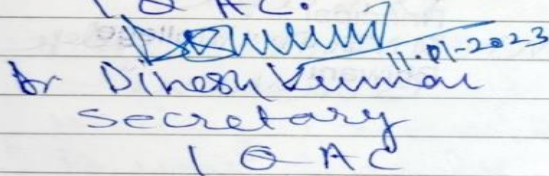 IQAC.
11.01-2023
Dr Dinesh Kumar
Secretary
IQAC